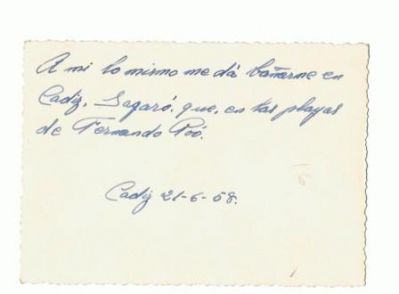 A mi lo mismo me dá bañarme en
Cadiz, Sagaró, que, en las playas
de Fernando Póo.
Cadiz 21-6-58.